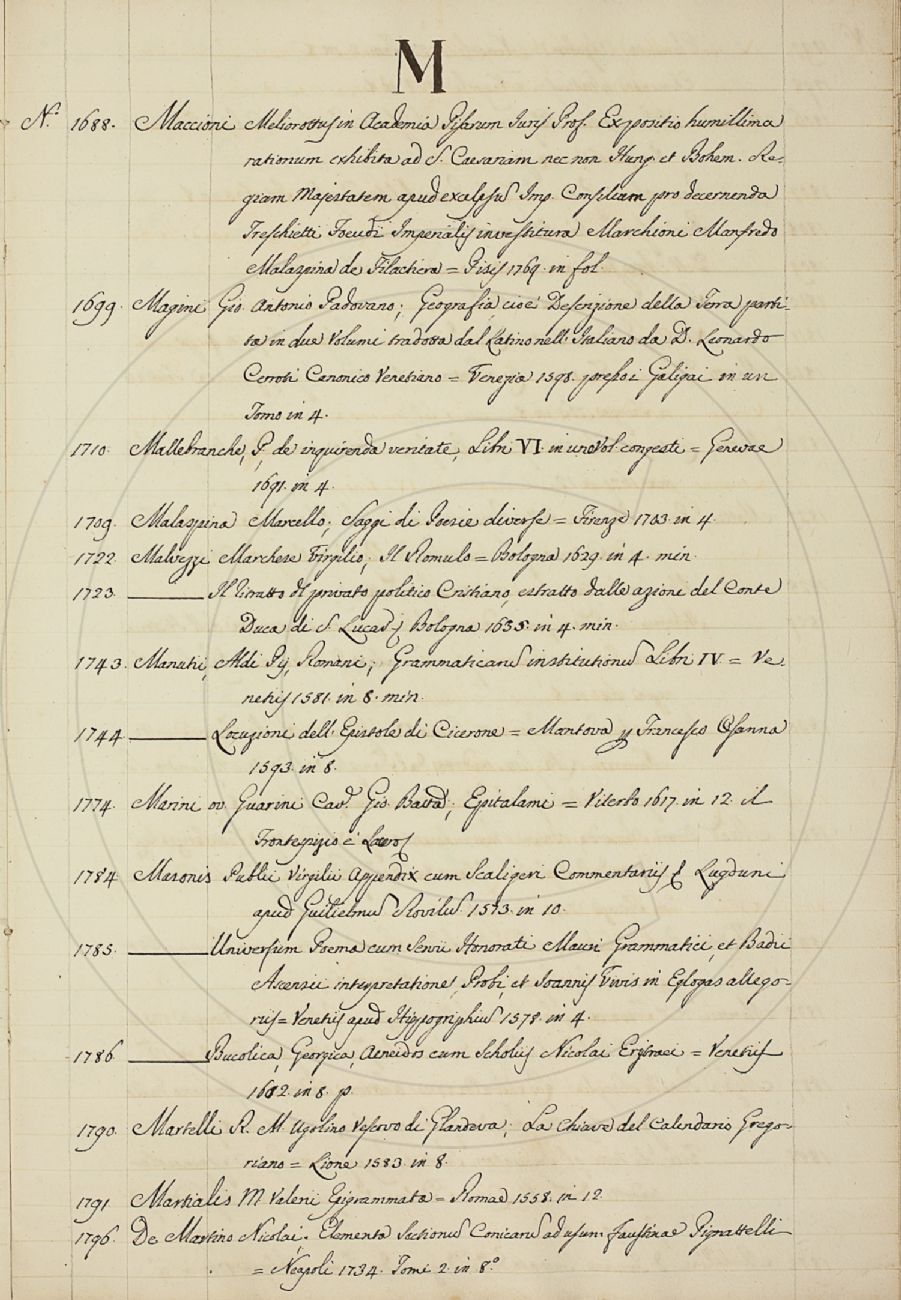 M
N.° 1688. Maccioni Meliorottus in Academia Pisarum Juris Prof. Expositio humillima
rationum exhibita ad S. Caesariam nec non Hung. et Bohem. Re-
giam Majestatem apud excelsum Imp. Consilium pro decernenda
Treschietti Foeudi Imperialis investitura Marchioni Manfredo
Malaspina de Filachera = Pisis 1769. in fol.
1699. Magini Gio. Antonio Padovano; Geografia, cioè Descrizione della Terra parti-
ta in due Volumi tradotta dal Latino nell' Italiano da D. Leonardo
Cernoti Canonico Venetiano = Venezia 1598. presso i Galigai in un
Tomo in 4.
1710. Mallebranche, P. de inquirenda veritate, Libri VI. in uno Vol. congesti = Genevae
1691. in 4.
1709. Malaspina Marcello; Saggi di Poesie diverse = Firenze 1703. in 4.
1722. Malvezzi Marchese Virgilio; Il Romulo = Bologna 1629. in 4. min.
1723. ——— Il Ritratto del privato politico Cristiano, estratto dalle azione del Conte
Duca di S. Lucar; Bologna 1635. in 4. min.
1743. Manutii, Aldi Pij, Romani; Grammaticarum institutionum Libri IV. = Ve-
netiis 1581. in 8. min.
1744. ——— Locuzioni dell' Epistole di Cicerone = Mantova per Francesco Osanna
1593. in 8.
1774. Marini ov. Guarini Cav. Gio. Batta; Epitalami = Viterbo 1617. in 12. il
Frontespizio è
1784. Maronis Publii Virgilii Appendix cum Scaligeri Commentariis Lugduni
apud Guilielmum Rovilium 1573. in 10.
1785. ——— Universum Poema cum Servii Honorati Mauri Grammatici, et Badii
Ascensii interpretatione, Probi, et Joannis Vivis in Eglogas allego-
riis = Venetiis apud 1578. in 4.
1786. ——— Bucolica, Georgica, Aeneidos cum Scholiis Nicolai Erytraei = Venetiis
1682. in 8. p.
1790. Martelli R. M. Ugolino Vescovo di Glandeva; La Chiave del Calendario Grego-
riano = Lione 1583. in 8.
1791. Martialis M. Valerii Epigrammata = Romae 1558. in 12.
1796. De Martino Nicolai. Elementa Sectionum Conicarum ad usum Faustinae Pignattelli
= Neapoli 1734. Tomi 2. in 8.°